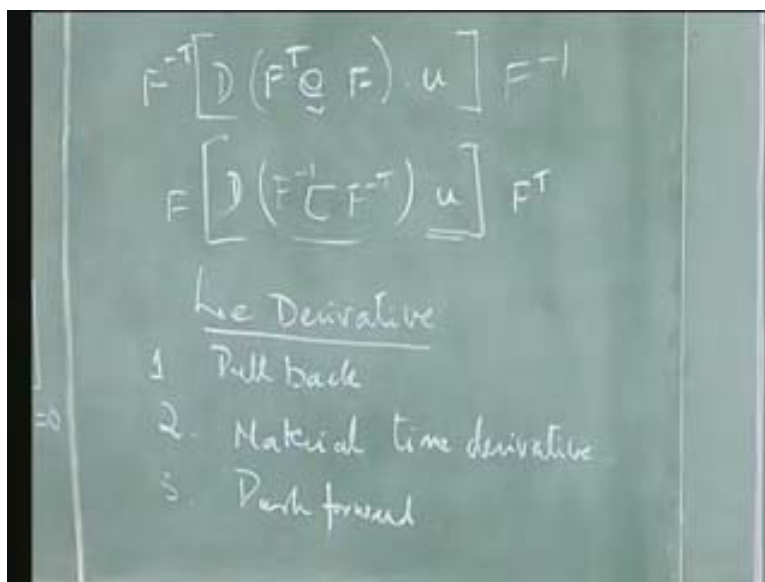 F^{-T} [ D ( F^T e F ) . u ] F^{-1}
F [ D ( F^{-1} τ F^{-T} ) u ] F^T
Lie Derivative
1 Pull back
2. Material time derivative
3. Push forward
=0